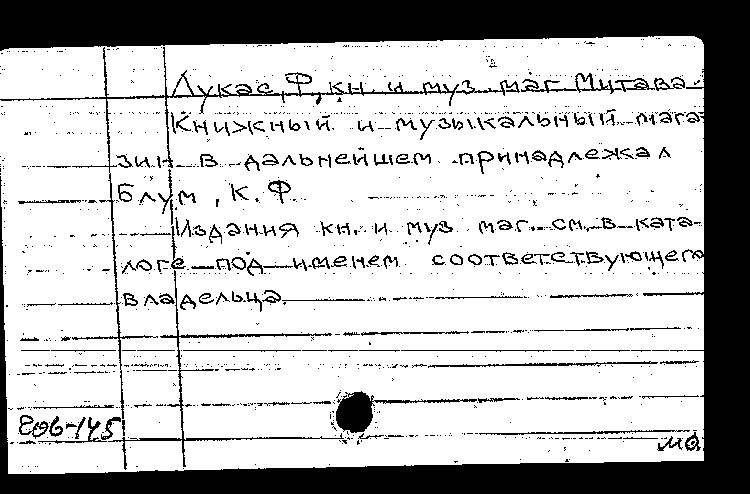 Лукас, Ф, кн. и муз. маг. Митава.
Книжный и музыкальный мага-
зин в дальнейшем принадлежал
Блум, К. Ф
Издания кн. и муз маг. см. в ката-
логе под именем соответствующего
владельца.
806-145
мо.